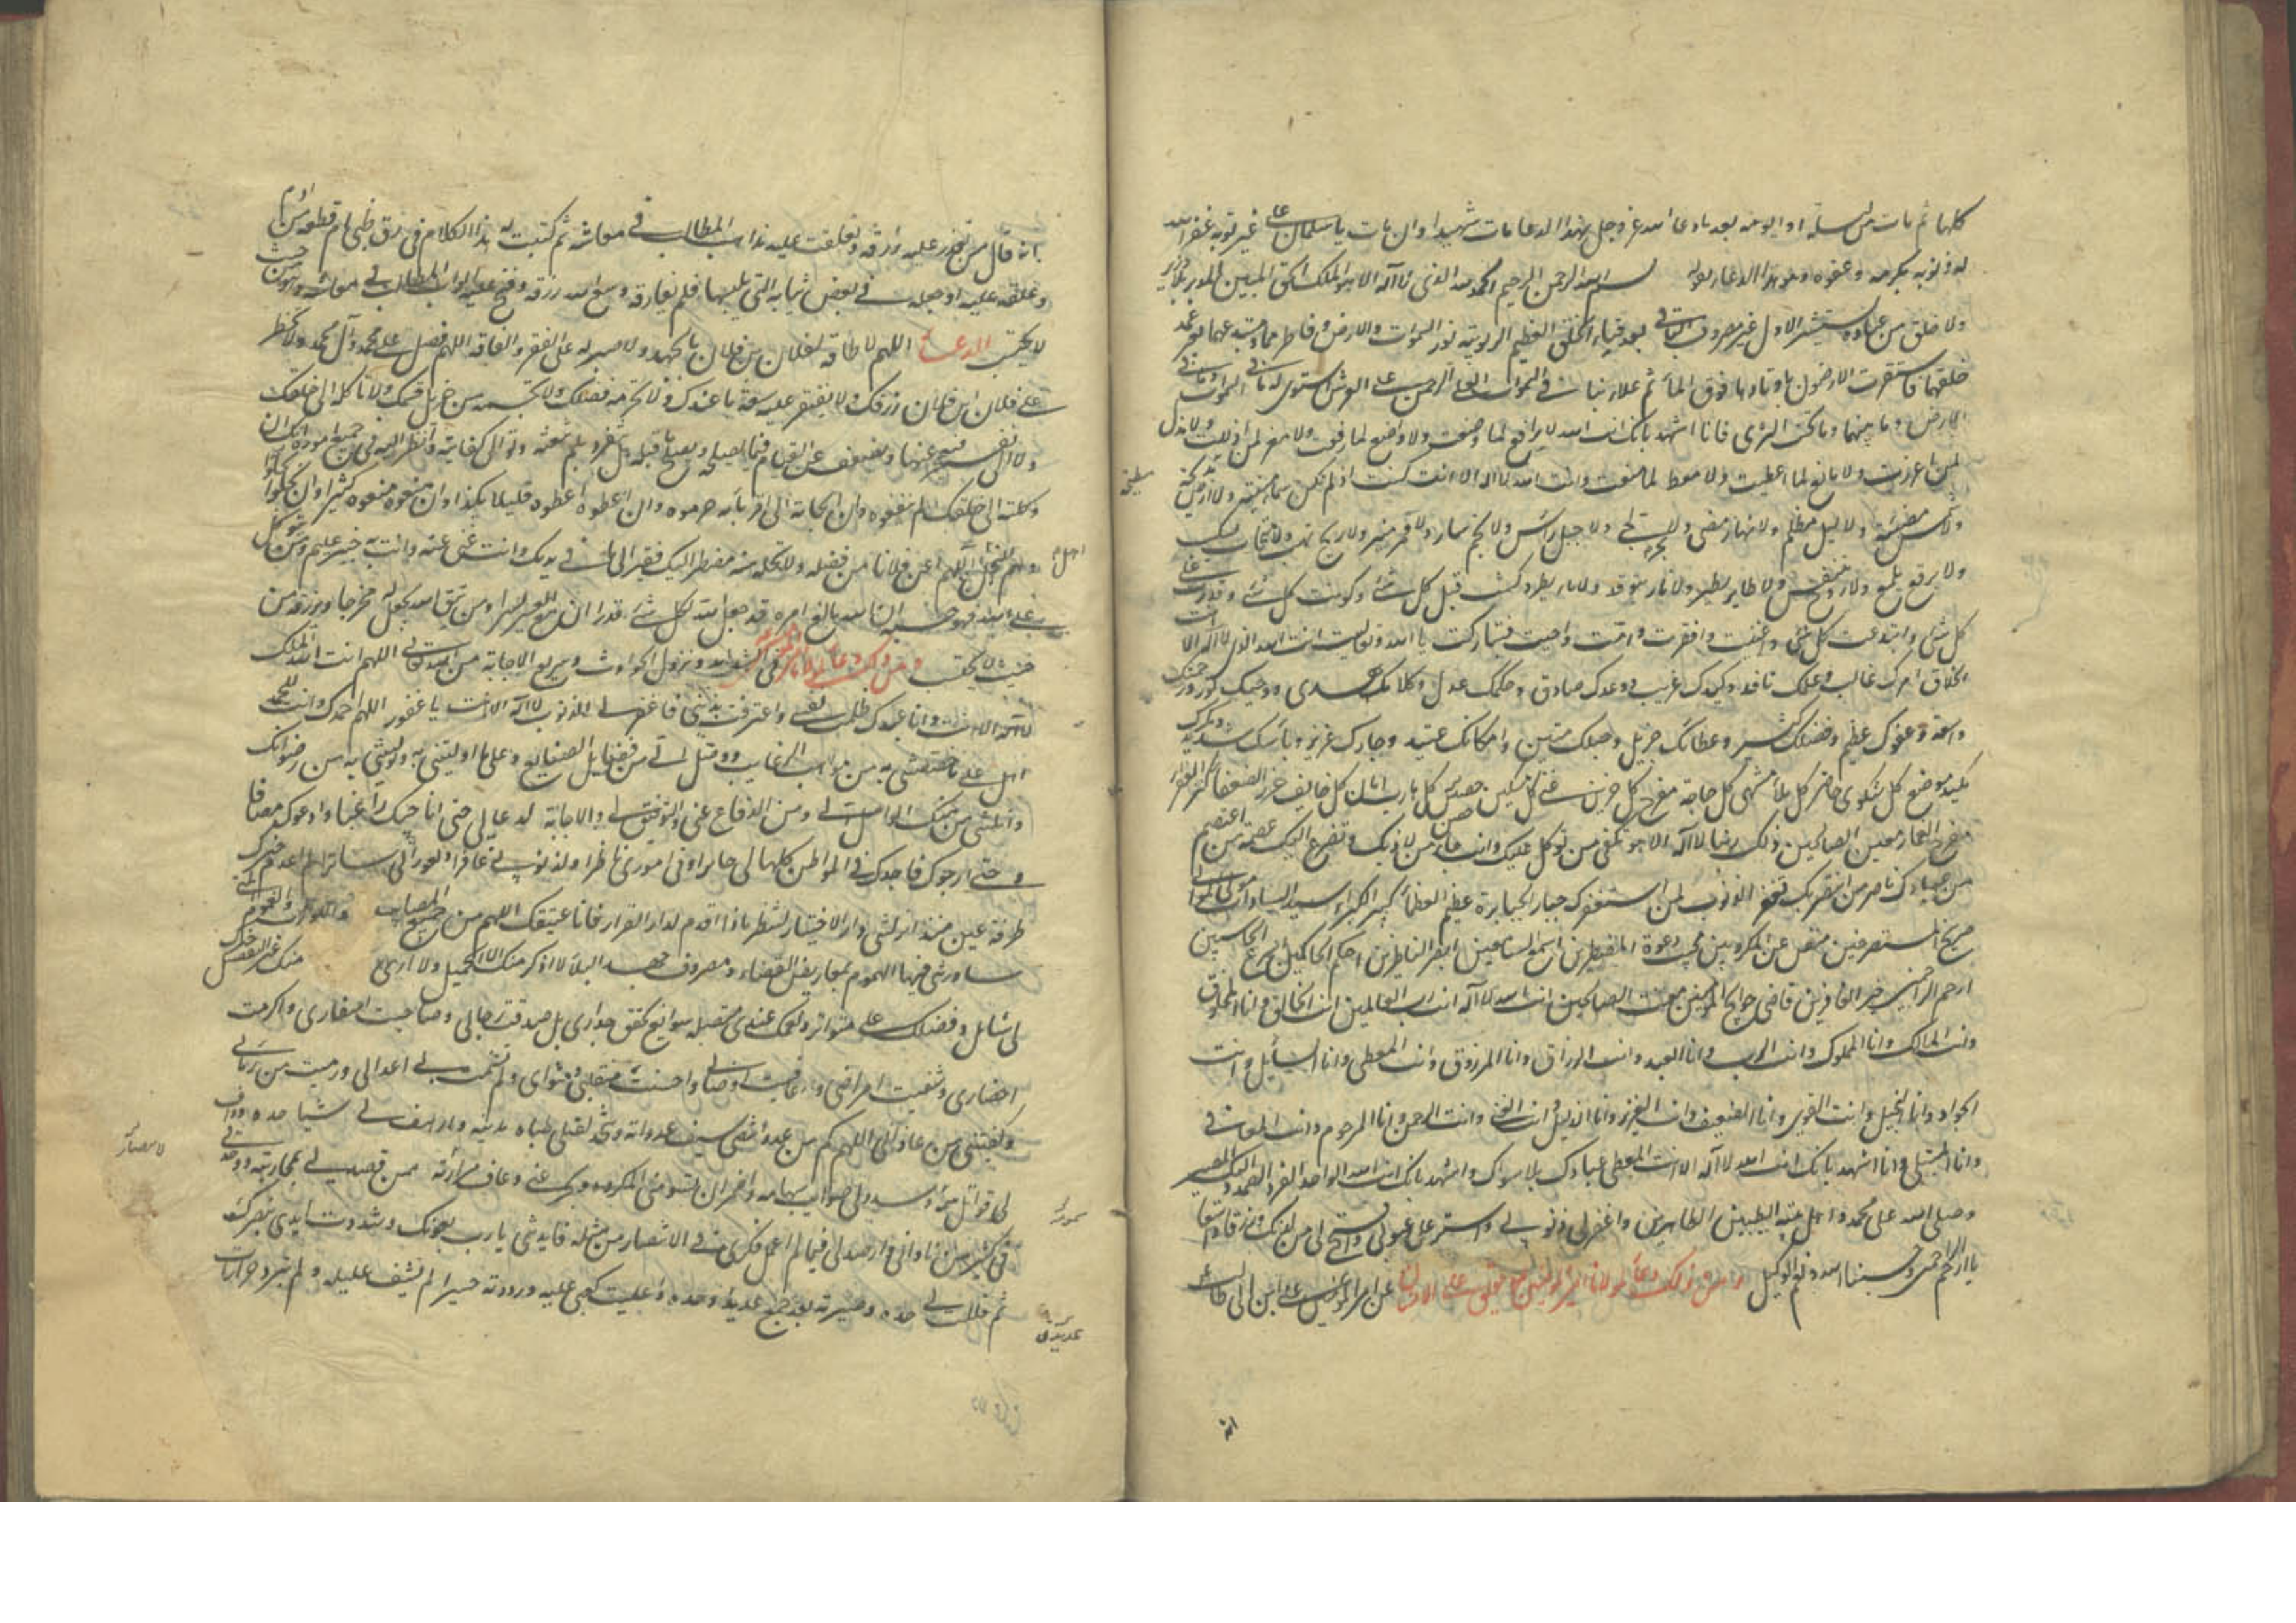 كلها ثم مات من ليلته او يومه بعد ما دعا الله عز وجل بهذا الدعا مات شهيدا وان مات يا سلمان على غير توبة غفر الله
له ذنوبه بكرمه وعفوه وهو هذا الدعا يقول بسم الله الرحمن الرحيم الحمد لله الذي لا اله الا هو الملك الحق المبين المدبر بلا وزير
ولا خلق من عباده يستشير الاول غير مصروف الباقي بعد فناء الخلق العظيم الربوبية نور السموات والارض وفاطرهما ومبتدعهما بغير عمد
خلقهما فاستقرت الارضون باوتادها فوق الماء ثم علا ربنا في السموات العلى الرحمن على العرش استوى له ما في السموات وما في
الارض وما بينهما وما تحت الثرى فانا اشهد بانك انت الله لا رافع لما وضعت ولا واضع لما رفعت ولا معز لمن اذللت ولا مذل
لمن اعززت ولا مانع لما اعطيت ولا معطي لما منعت وانت الله لا اله الا انت كنت اذ لم تكن سماء مبنية ولا ارض مدحية
ولا شمس مضيئة ولا ليل مظلم ولا نهار مضيء ولا بحر لجي ولا جبل راس ولا نجم سار ولا قمر منير ولا ريح تهب ولا سحاب يسكب
ولا برق يلمع ولا روح تتنفس ولا طاير يطير ولا نار تتوقد ولا ماء يطرد كنت قبل كل شئ وكونت كل شئ وقدرت على
كل شئ وابتدعت كل شئ واغنيت وافقرت وامت واحييت فتباركت يا الله وتعاليت انت الله الذي لا اله الا انت
الخلاق امرك غالب وعلمك نافذ وكيدك غريب ووعدك صادق وحكمك عدل وكلامك هدى ووحيك نور ورحمتك
واسعة وعفوك عظيم وفضلك كثير وعطائك جزيل وحبلك متين وامكانك عتيد وجارك عزيز وبأسك شديد ومكرك
مكيد موضع كل شكوى حاضر كل بلاء منتهى كل حاجة مفرج كل حزين غنى كل مسكين حصن كل هارب امان كل خايف حرز الضعفا كنز الفقرا
مفرج الغما معين الصالحين ذلك ربنا لا اله الا هو تكفي من توكل عليك وانت جار من لاذ بك وتضرع اليك عصمة من اعتصم
من عبادك ناصر من انتصر بك تغفر الذنوب لمن استغفرك جبار الجبابرة عظيم العظماء كبير الكبراء سيد السادات مولى الموالي
صريخ المستصرخين منفس عن المكروبين مجيب دعوة المضطرين اسمع السامعين ابصر الناظرين احكم الحاكمين اسرع الحاسبين
ارحم الراحمين خير الغافرين قاضي حوايج المؤمنين مغيث الصالحين انت الله لا اله انت رب العالمين انت الخالق وانا المخلوق
وانت المالك وانا المملوك وانت الرب وانا العبد وانت الرزاق وانا المرزوق وانت المعطي وانا السائل وانت
الجواد وانا البخيل وانت القوي وانا الضعيف وانت العزيز وانا الذليل وانت الغني وانت الرحمن وانا المرحوم وانت المعافي
وانا المبتلى وانا اشهد بانك انت الله لا اله الا انت المعطي عبادك بلا سؤال واشهد بانك انت الله الواحد الفرد الصمد واليك المصير
وصلى الله على محمد واهل بيته الطيبين الطاهرين واغفر لي ذنوبي واستر علي عيوبي وافتح لي من لدنك رزقا واسعا
يا ارحم الراحمين وحسبنا الله ونعم الوكيل ومن ذلك دعاء لمولانا امير المؤمنين عن امير المؤمنين علي ابن ابي طالب
انه
انه قال من تعذر عليه رزقه وتغلقت عليه مذاهب المطالب في معاشه ثم كتبت له هذا الكلام في رق ظبي او قطعة من ادم
وعلقه عليه او جعله في بعض ثيابه التي يلبسها فلم يفارقه وسع الله رزقه وفتح عليه ابواب المطالب في معاشه من حيث
لا يحتسب الدعاء اللهم لا طاقة لفلان بن فلان بالجهد ولا صبر له على الفقر والفاقة اللهم فصل على محمد وآل محمد ولا تحظر
على فلان ابن فلان رزقك ولا تقتر عليه سعة ما عندك ولا تحرمه فضلك ولا تحسمه من جزيل قسمك ولا تكله الى خلقك
ولا الى نفسه فيعجز عنها ويضعف عن القيام فيما يصلحه ويصلح ما قبله بل تفرد بلم شعثه وتولى كفايته وانظر اليه في جميع اموره انك ان
وكلته الى خلقك لم ينفعوه وان الجاته الى اقربائه حرموه وان اعطوه اعطوه قليلا نكدا وان منعوه منعوه كثيرا وان بخلوا
فهم للبخل اهل اللهم اغن فلانا من فضلك ولا تخله منه مضطر اليك فقير الى ما في يديك وانت غني عنه وانت به خبير عليم ومن يتوكل
على الله فهو حسبه ان الله بالغ امره قد جعل الله لكل شئ قدرا ان مع العسر يسرا ومن يتق الله يجعل له مخرجا ويرزقه من
حيث لا يحتسب ومن ذلك دعاء لمولانا في الشدايد ونزول الحوادث وسريع الاجابة من الله تعالى اللهم انت الله الملك
لا اله الا انت وانا عبدك ظلمت نفسي واعترفت بذنبي فاغفر لي الذنوب لا اله الا انت يا غفور اللهم احمدك وانت للحمد
اهل على ما اختصصتني به من مواهب الرغايب ووصل الي من فضايل الصنايع وعلى ما اوليتني به وتوليتني به من رضوانك
وانلتني من منك الواصل الي ومن الدفاع عني والتوفيق لي والاجابة لدعايي حتى اناجيك راغبا وادعوك مصافيا
وحتى ارجوك فاجدك في المواطن كلها لي جابرا وفي اموري ناظرا ولذنوبي غافرا ولعوراتي ساترا لم اعدم خيرك
طرفة عين منذ انزلتني دار الاختبار لتنظر ماذا اقدم لدار القرار فانا عتيقك اللهم من جميع المصايب واللوازب والغموم التي
ساورتني فيها الهموم بمعاريض القضاء ومصروف جهد البلاء لا اذكر منك الا الجميل ولا ارى منك غير التفضيل خيرك
لي شامل وفضلك علي متواتر ونعمك عندي متصلة سوابغ لم تحقق حذاري بل صدقت رجائي وصاحبت اسفاري واكرمت
احضاري وشفيت امراضي وعافيت اوصابي واحسنت منقلبي ومثواي ولم تشمت بي اعدائي ورميت من رماني
وكفيتني من عاداني اللهم كم من عدو انتضى علي سيف عداوته وشحذ لقتلي ظباة مديته وارهف لي شبا حده وداف
لي قواتل سمومه وسدد لي صوايب سهامه واضمر ان يسومني المكروه ويجرعني ذعاف مرارته ممن قصدني بمحاربته ووحدتي
في كثير من ناواني وارصد لي فيما لم اعمل فكري في الانتصار من مثله فايدتني يا رب بعونك وشددت ايدي بنصرك
ثم فللت لي حده وصيرته بعد جمع عديده وحده واعليت كعبي عليه ورددته حسيرا لم تشف غليله ولم تبرد حرارات
اهل
سمومه
عديده